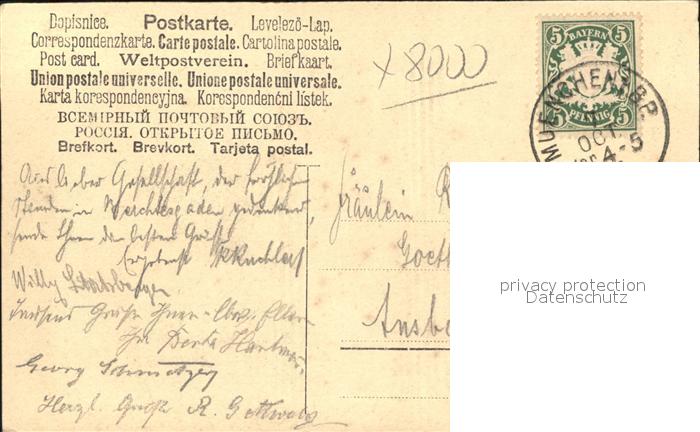 Dopisnice. Postkarte. Levelező-Lap.
Correspondenzkarte. Carte postale. Cartolina postale.
Post card. Weltpostverein. Briefkaart.
Union postale universelle. Unione postale universale.
Karta korespondencyjna. Korespondenční lístek.
ВСЕМІРНЫЙ ПОЧТОВЫЙ СОЮЗЪ.
РОССІЯ. ОТКРЫТОЕ ПИСЬМО.
Brefkort. Brevkort. Tarjeta postal.
x 8000
5 BAYERN 5
5 PFENNIG 5
MUENCHEN 1 BP.
OCT.
4-5
Aus lieber Gesellschaft, der fröhlichen
Stunden in Berchtesgaden gedenkend,
sende Ihnen die besten Grüße
Willy
Tausend Grüße Ihnen Eltern
Ihre Berta
Georg
Herzl. Gruß R.
Fräulein
Goeth
Ansb
privacy protection
Datenschutz